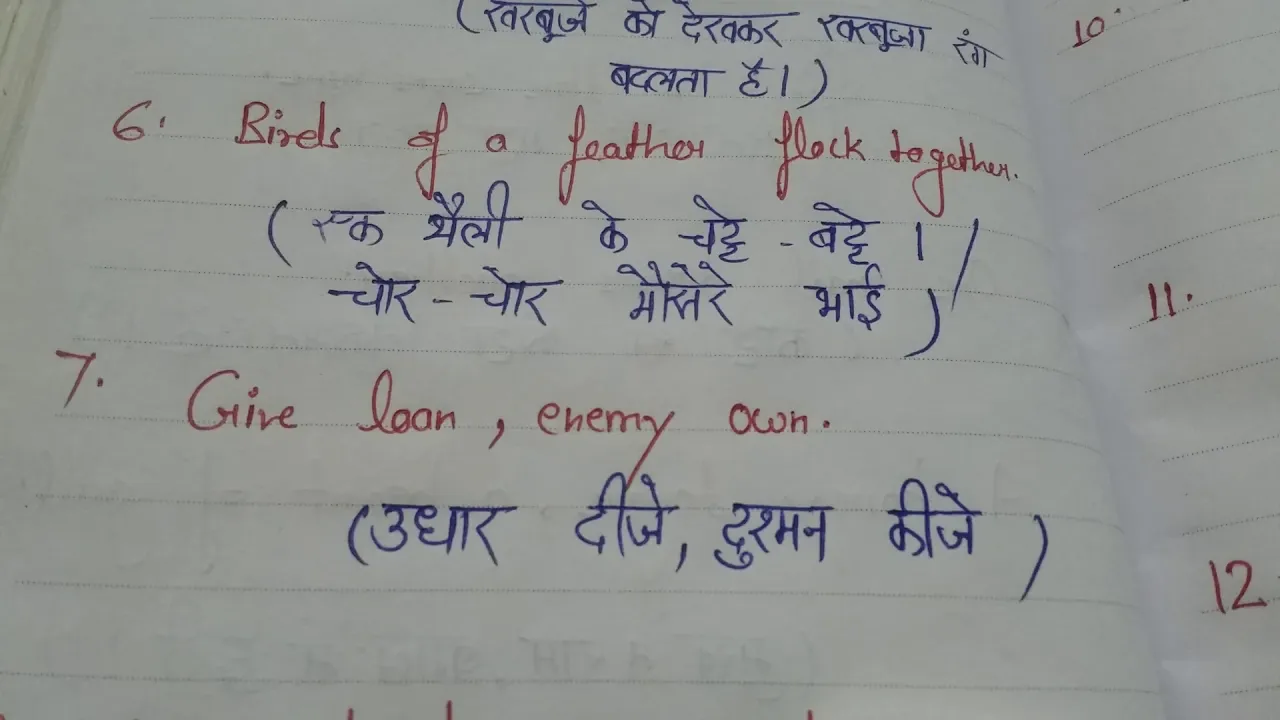 (खरबूजे को देखकर खरबूजा रंग
बदलता है।)
6. Birds of a feather flock together.
(एक थैली के चट्टे-बट्टे। /
चोर-चोर मौसेरे भाई)
7. Give loan, enemy own.
(उधार दीजे, दुश्मन कीजे)
10.
11.
12